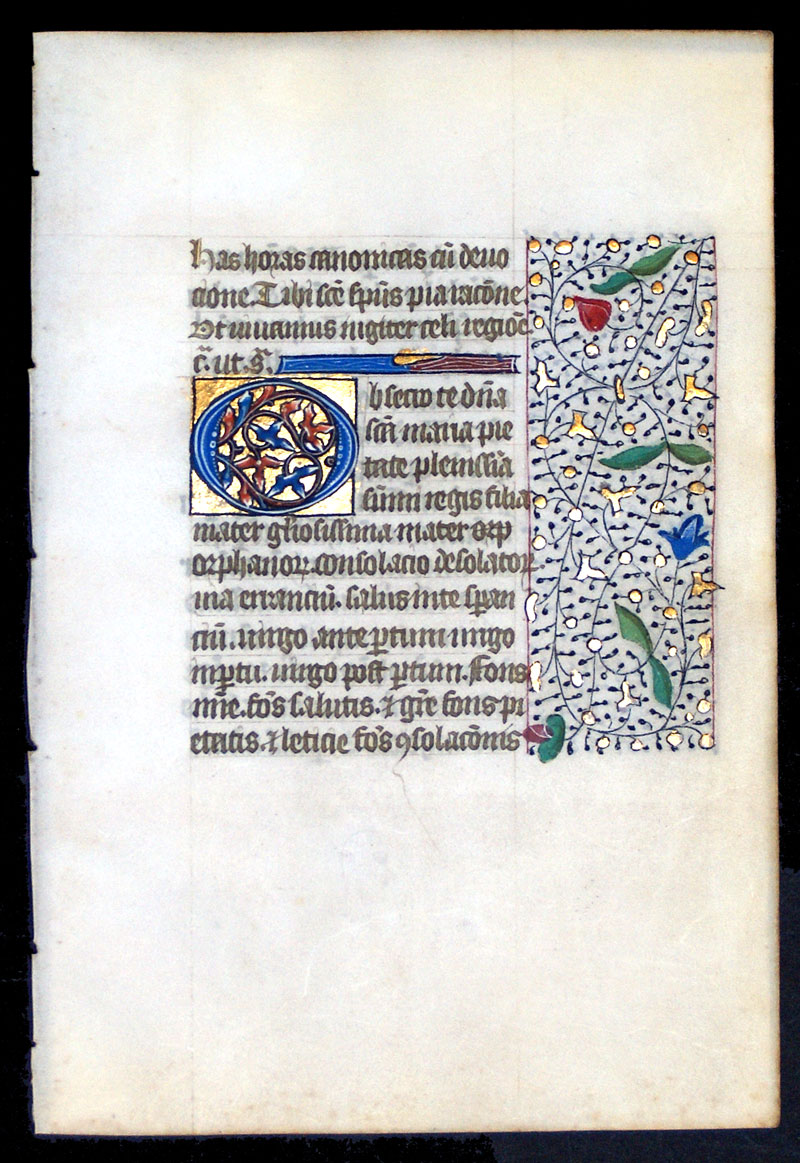 has horas canonicas cū deuo
cione. Tibi scē spūs pia racōne
Vt uiuamus iugiter celi regiōe
c̄. ut. sͣ.
Obsecro te dn̄a
scā maria pie
tate plenissīa
sūmi regis filia
mater gl̄iosissima mater orp
orphanoꝝ. consolacio desolatoꝝ.
uia erranciū. salus in te sperān
ciū. uirgo ante ꝑtum uirgo
in ꝑtu. uirgo post ꝑtum. Fons
mīe. fōs salutis. ⁊ gr̄e fons pi
etatis. ⁊ leticie fōs ꝯsolacōnis